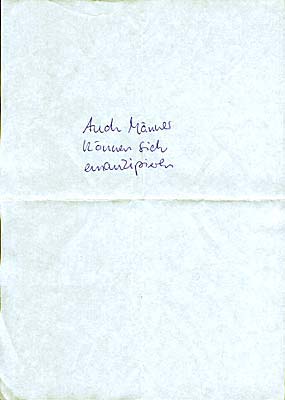 Auch Männer
können sich
emanzipieren